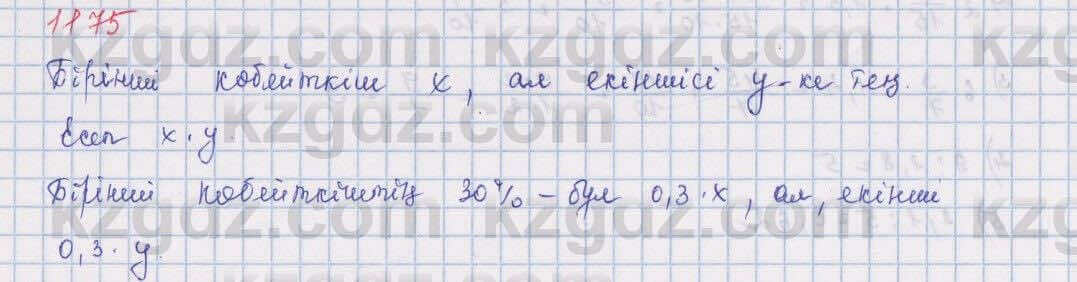 1175
Бірінші көбейткіш x, ал екіншісі y-ке тең.
Есеп x·y.
Бірінші көбейткіштің 30% – бұл 0,3·x, ал, екінші
0,3·y.
kzgdz.com kzgdz.com
kzgdz.com
kzgdz.com kzgdz.com